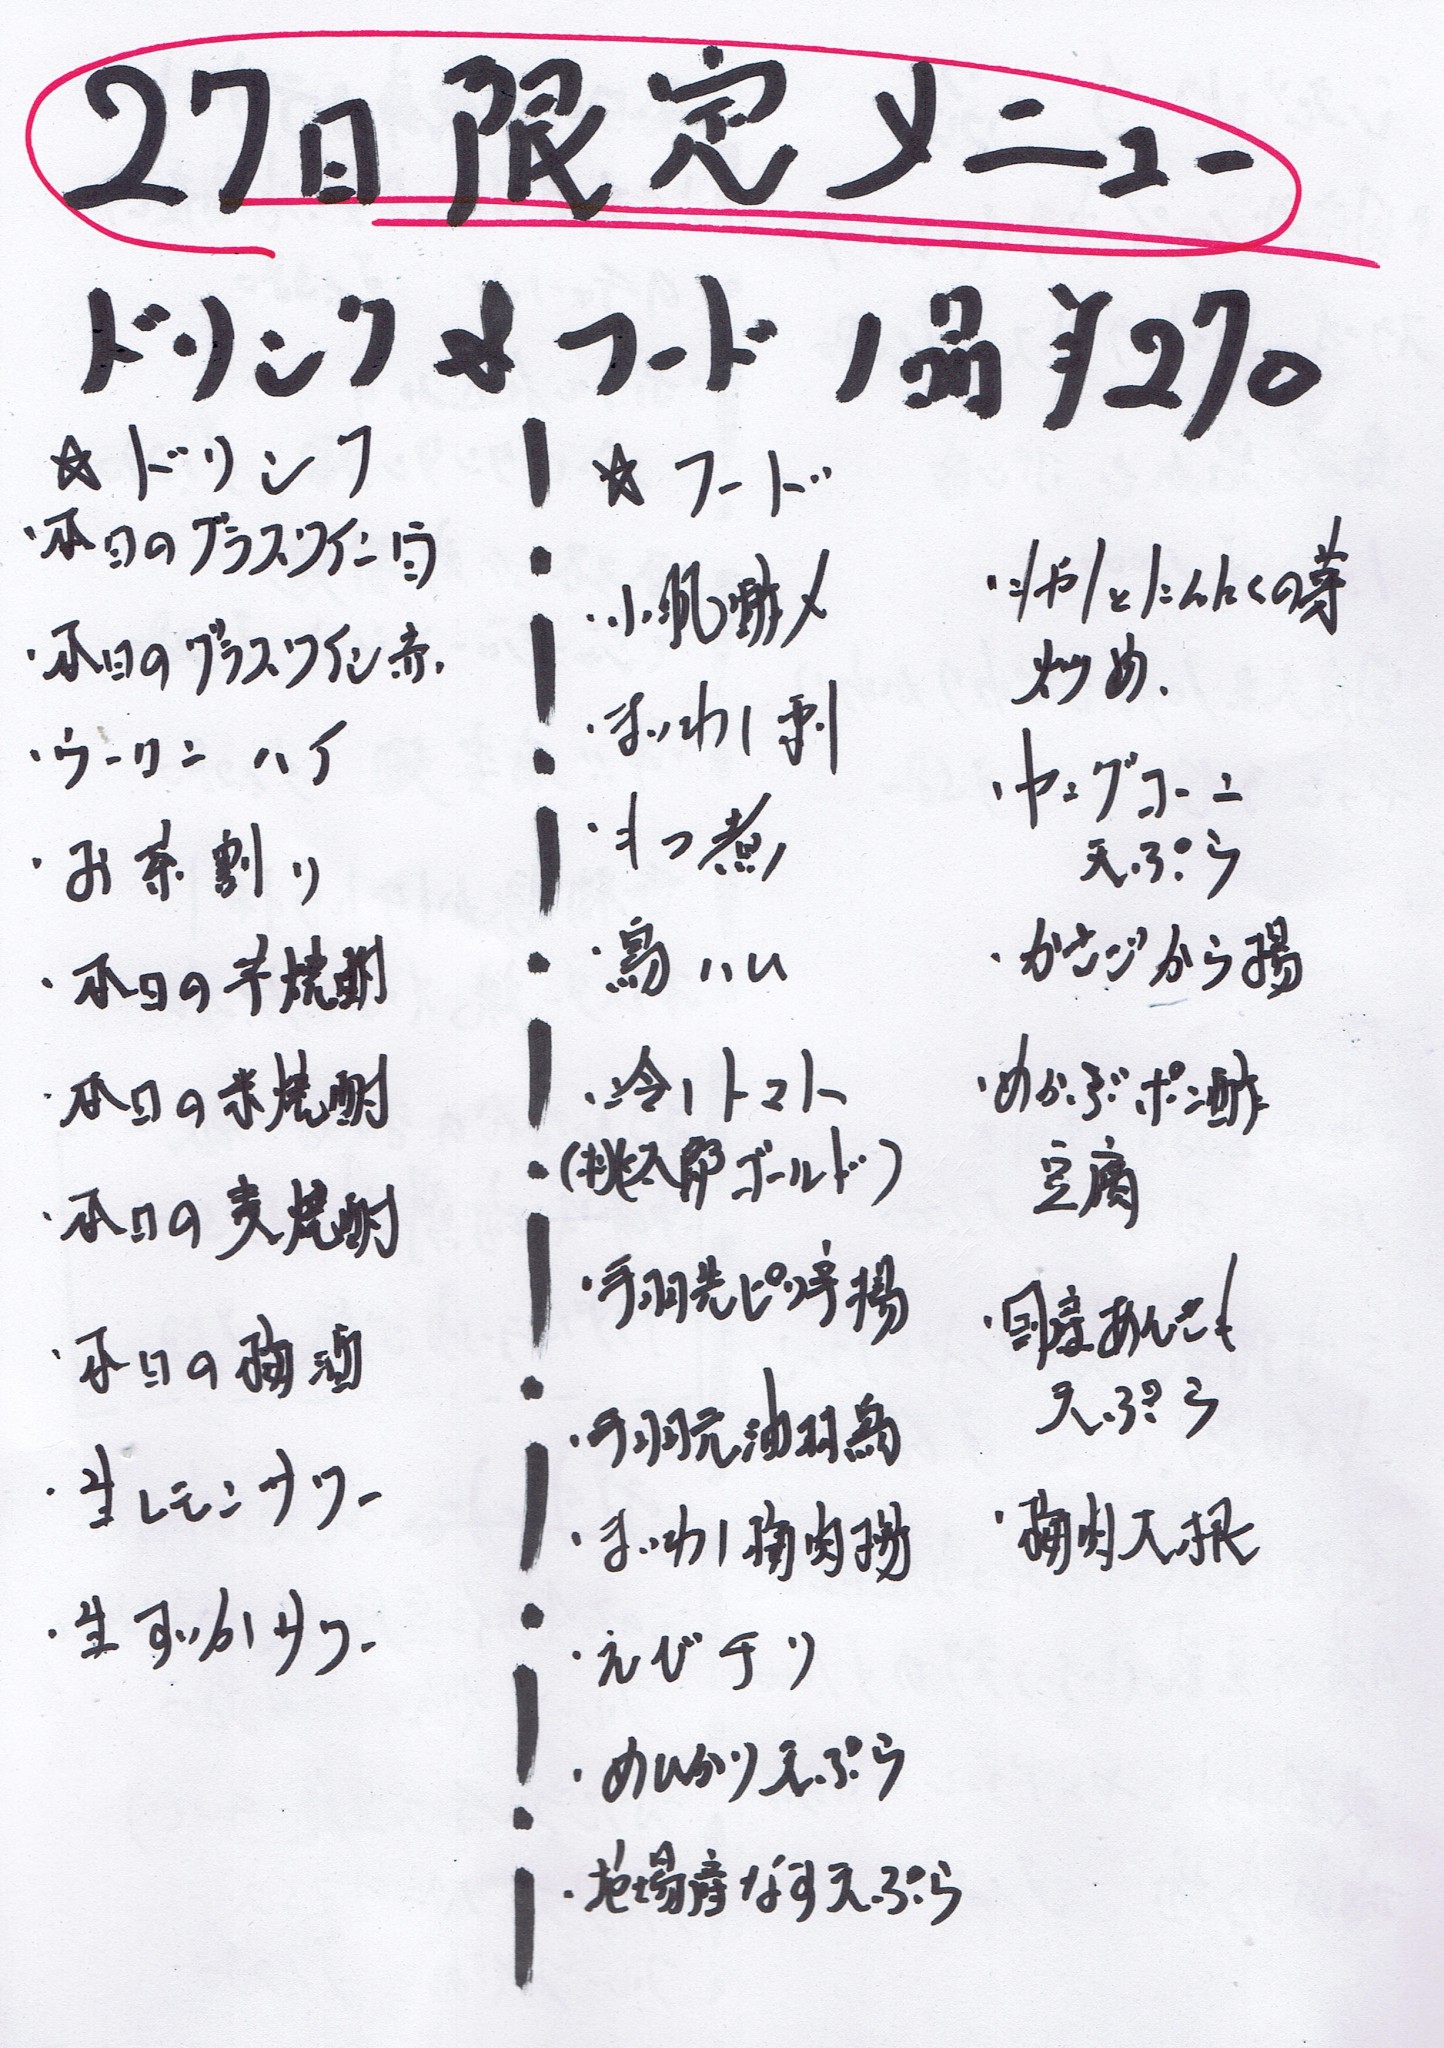 27日限定メニュー
ドリンク&フード1品¥270
☆ドリンク
・本日のグラスワイン白
・本日のグラスワイン赤
・ウーロンハイ
・お茶割り
・本日の芋焼酎
・本日の米焼酎
・本日の麦焼酎
・本日の梅酒
・生レモンサワー
・生すいかサワー
☆フード
・小肌酢〆
・まいわし刺
・もつ煮
・鳥ハム
・冷しトマト
(桃太郎ゴールド)
・手羽先ピリ辛揚
・手羽元油淋鳥
・まいわし梅肉揚
・えびチリ
・めひかり天ぷら
・地場産なす天ぷら
・もやしとにんにくの芽
炒め
・ヤングコーン
天ぷら
・かさごから揚
・めかぶポン酢
豆腐
・国産あんこも
天ぷら
・梅肉大根